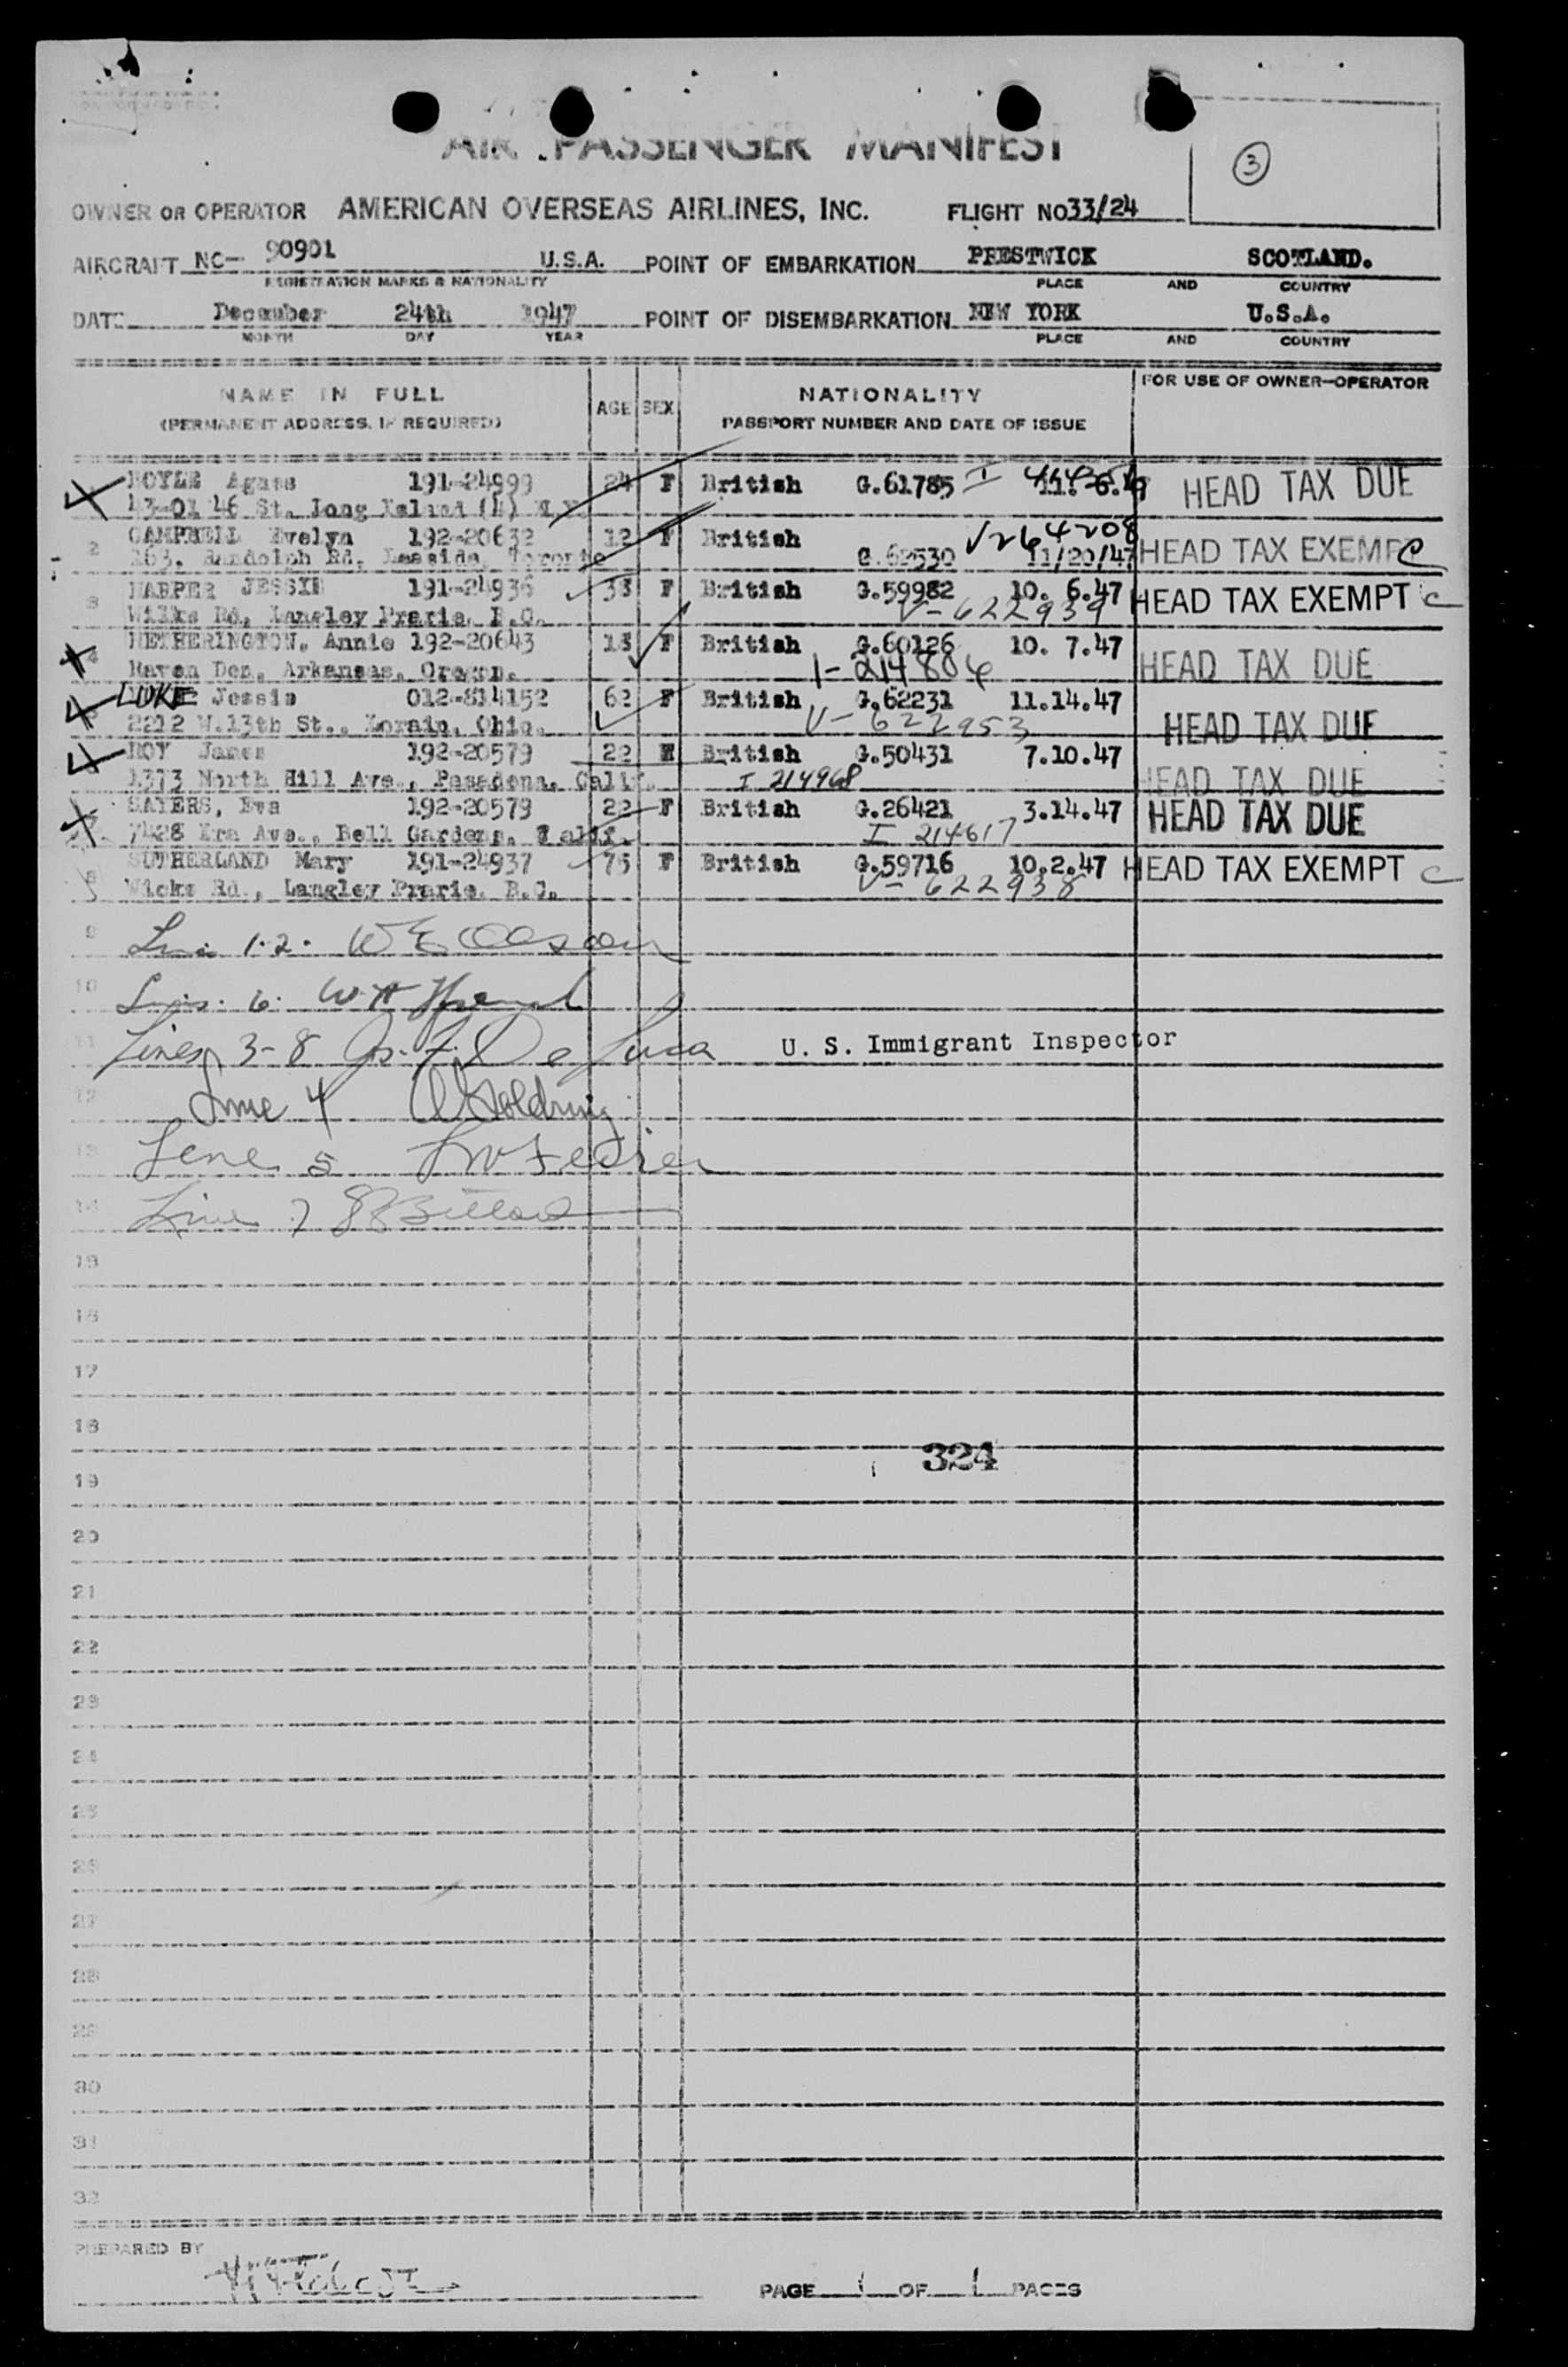 3
AIR PASSENGER MANIFEST
OWNER OR OPERATOR AMERICAN OVERSEAS AIRLINES, INC. FLIGHT NO 33/24
AIRCRAFT NC- 90901 U.S.A. POINT OF EMBARKATION PRESTWICK SCOTLAND.
REGISTRATION MARKS & NATIONALITY PLACE AND COUNTRY
DATE December 24th 1947 POINT OF DISEMBARKATION NEW YORK U.S.A.
MONTH DAY YEAR PLACE AND COUNTRY
NAME IN FULL AGE SEX NATIONALITY FOR USE OF OWNER-OPERATOR
(PERMANENT ADDRESS, IF REQUIRED) PASSPORT NUMBER AND DATE OF ISSUE
BOYLE Agnes 191-24999 24 F British G.61785 I 11. 6.47 HEAD TAX DUE
43-01 46 St. Long Island (4) N.Y.
2 CAMPBELL Evelyn 192-20632 12 F British V264208
263, Randolph Rd, Leaside, Toronto G.62530 11/20/47 HEAD TAX EXEMPT C
3 HARPER JESSIE 191-24936 38 F British G.59982 10. 6.47 HEAD TAX EXEMPT C
Wilks Rd, Langley Prarie. B.C. V-622939
4 HETHERINGTON, Annie 192-20643 18 F British G.60126 10. 7.47 HEAD TAX DUE
Raven Den, Arkansas, Oregon. I-214806
LUKE Jessie 012-814152 62 F British G.62231 11.14.47
2212 W.13th St., Lorain, Ohio. V-622953 HEAD TAX DUE
ROY James 192-20579 22 M British G.50431 7.10.47
1373 North Hill Ave., Pasadena, Calif. I 214968 HEAD TAX DUE
SAYERS, Eva 192-20579 22 F British G.26421 3.14.47 HEAD TAX DUE
7428 Ave., Bell Gardens, Calif. I 214617
8 SUTHERLAND Mary 191-24937 75 F British G.59716 10.2.47 HEAD TAX EXEMPT C
Wicks Rd., Langley Prarie. B.C. V-622938
9 1.2. W E
10 6. W H
11 Lines 3-8 Jos. F. De Luca U. S. Immigrant Inspector
12 Line 4 Goldring
13 Line 5
14 Line 7
15
16
17
18
324
19
20
21
22
23
24
25
26
27
28
29
30
31
32
PREPARED BY
PAGE 1 OF 1 PAGES